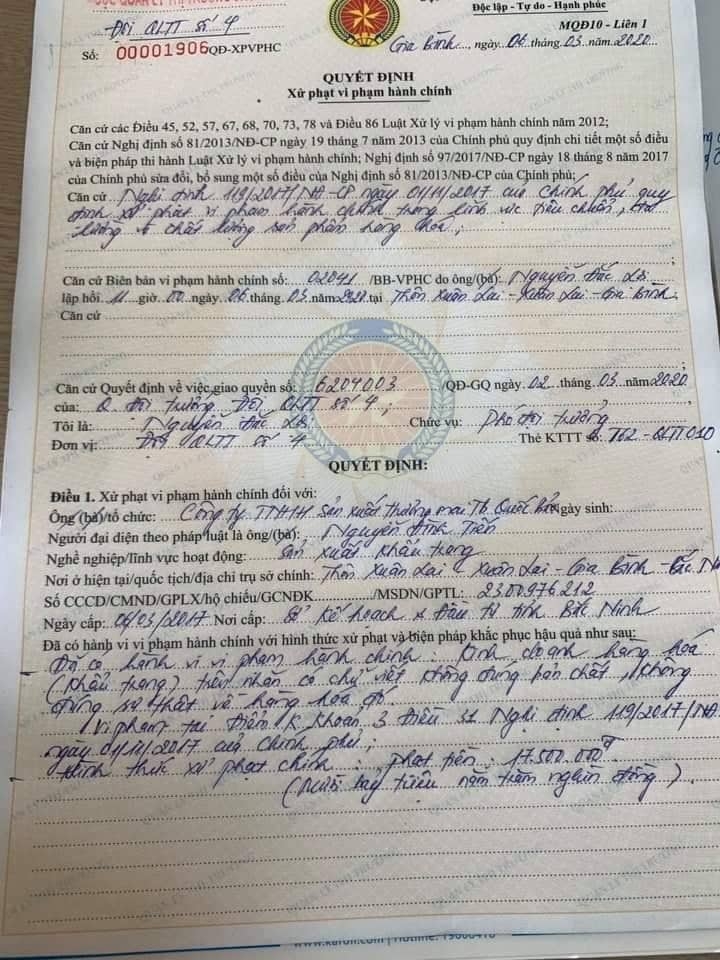 Độc lập - Tự do - Hạnh phúc
Đội QLTT số 4
MQĐ10 - Liên 1
Số: 00001906 QĐ-XPVPHC
Gia Bình, ngày 06 tháng 03 năm 2020
QUYẾT ĐỊNH
Xử phạt vi phạm hành chính
Căn cứ các Điều 45, 52, 57, 67, 68, 70, 73, 78 và Điều 86 Luật Xử lý vi phạm hành chính năm 2012;
Căn cứ Nghị định số 81/2013/NĐ-CP ngày 19 tháng 7 năm 2013 của Chính phủ quy định chi tiết một số điều
và biện pháp thi hành Luật Xử lý vi phạm hành chính; Nghị định số 97/2017/NĐ-CP ngày 18 tháng 8 năm 2017
của Chính phủ sửa đổi, bổ sung một số điều của Nghị định số 81/2013/NĐ-CP của Chính phủ;
Căn cứ Nghị định 119/2017/NĐ-CP ngày 01/11/2017 của Chính phủ quy
định xử phạt vi phạm hành chính trong lĩnh vực tiêu chuẩn, đo
lường và chất lượng sản phẩm hàng hóa;
Căn cứ Biên bản vi phạm hành chính số: 02041 /BB-VPHC do ông/(bà): Nguyễn Đắc
lập hồi 11 giờ 00 ngày 06 tháng 03 năm 2020 tại Thôn Xuân Lai - Xuân Lai - Gia Bình
Căn cứ
Căn cứ Quyết định về việc giao quyền số: 6204003 /QĐ-GQ ngày 02 tháng 03 năm 2020
của: Q. Đội trưởng Đội QLTT số 4;
Tôi là: Nguyễn Đắc Chức vụ: Phó đội trưởng
Đơn vị: Đội QLTT số 4 Thẻ KTTT số: T62-QLTT010
QUYẾT ĐỊNH:
Điều 1. Xử phạt vi phạm hành chính đối với:
Ông (bà)/tổ chức: Công ty TNHH sản xuất thương mại Tb Quốc Bảo Ngày sinh:
Người đại diện theo pháp luật là ông/(bà): Nguyễn Đình Tiến
Nghề nghiệp/lĩnh vực hoạt động: Sản xuất khẩu trang
Nơi ở hiện tại/quốc tịch/địa chỉ trụ sở chính: Thôn Xuân Lai - Xuân Lai - Gia Bình - Bắc N
Số CCCD/CMND/GPLX/hộ chiếu/GCNĐK /MSDN/GPTL: 2300976212
Ngày cấp: 06/03/2017 Nơi cấp: Sở Kế hoạch & Đầu tư tỉnh Bắc Ninh
Đã có hành vi vi phạm hành chính với hình thức xử phạt và biện pháp khắc phục hậu quả như sau:
Đã có hành vi vi phạm hành chính: Kinh doanh hàng hóa
(Khẩu trang) trên nhãn có chữ viết không đúng bản chất, không
đúng sự thật về hàng hóa đó.
Vi phạm tại Điểm k Khoản 3 Điều 31 Nghị định 119/2017/NĐ
ngày 01/11/2017 của Chính phủ;
Hình thức xử phạt chính: phạt tiền: 17.500.000đ
(Mười bảy triệu năm trăm nghìn đồng)